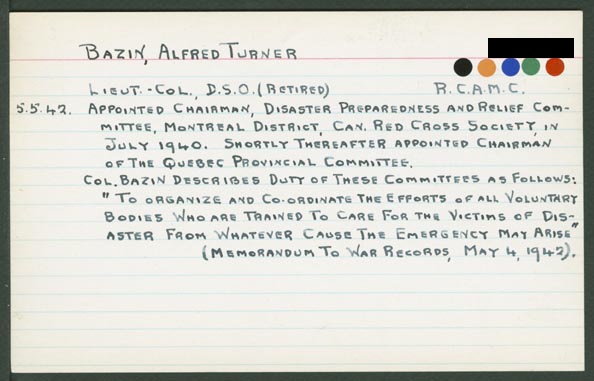 BAZIN, ALFRED TURNER
LIEUT.-COL., D.S.O. (RETIRED) R.C.A.M.C.
5.5.42. APPOINTED CHAIRMAN, DISASTER PREPAREDNESS AND RELIEF COM-
MITTEE, MONTREAL DISTRICT, CAN. RED CROSS SOCIETY, IN
JULY 1940. SHORTLY THEREAFTER APPOINTED CHAIRMAN
OF THE QUEBEC PROVINCIAL COMMITTEE.
COL. BAZIN DESCRIBES DUTY OF THESE COMMITTEES AS FOLLOWS:
"TO ORGANIZE AND CO-ORDINATE THE EFFORTS OF ALL VOLUNTARY
BODIES WHO ARE TRAINED TO CARE FOR THE VICTIMS OF DIS-
ASTER FROM WHATEVER CAUSE THE EMERGENCY MAY ARISE"
(MEMORANDUM TO WAR RECORDS, MAY 4, 1942).